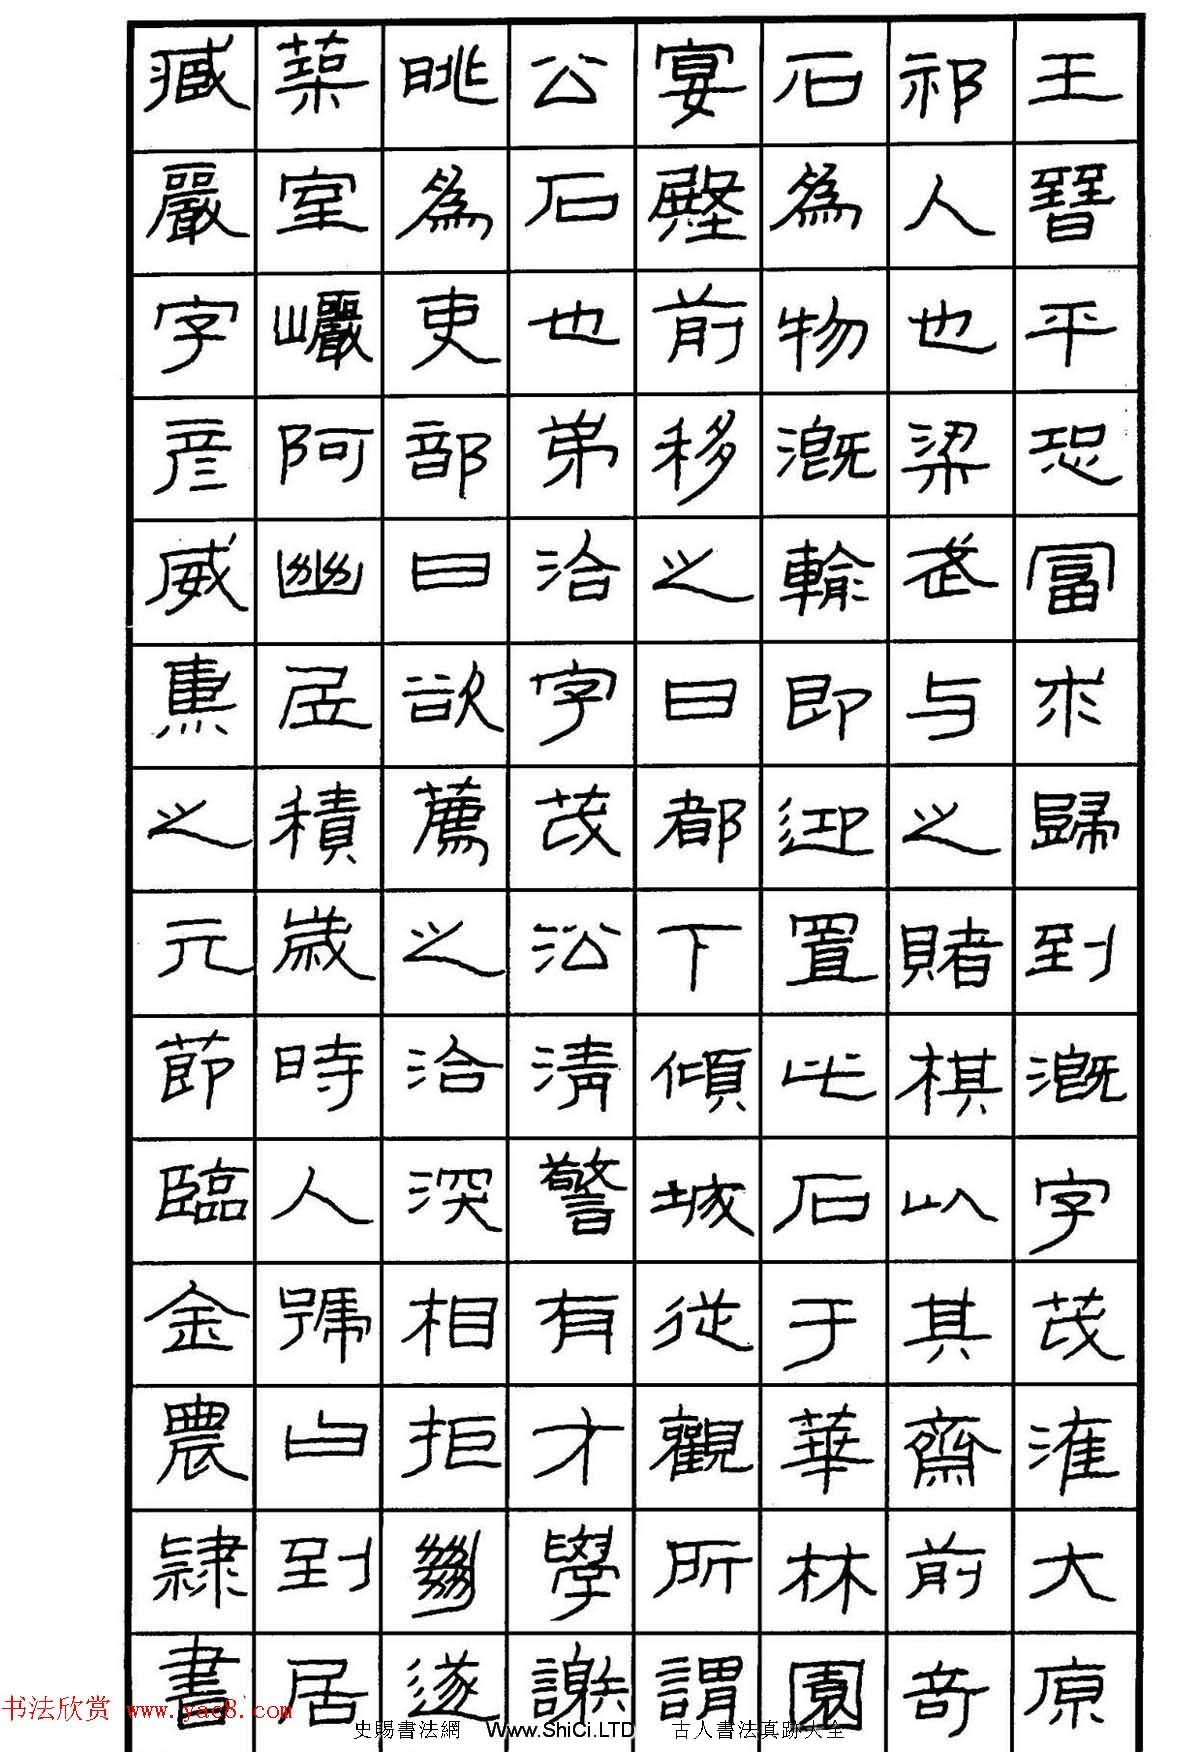 王晉平恐富求歸到溉字茂灌大原
祁人也梁武与之賭棋以其齋前竒
石為物溉輸即迎置此石于華林園
宴殿前移之曰都下傾城從觀所謂
公石也弟洽字茂沿清警有才學謝
眺為吏部曰欲薦之洽深相拒絕遂
築室巖阿幽居積歲時人號曰到居
臧嚴字彥威熏之元節臨金農隸書
书法欣赏 www.yac8.com
史賜書法網 Www.ShiCi.LTD 古人書法真跡大全